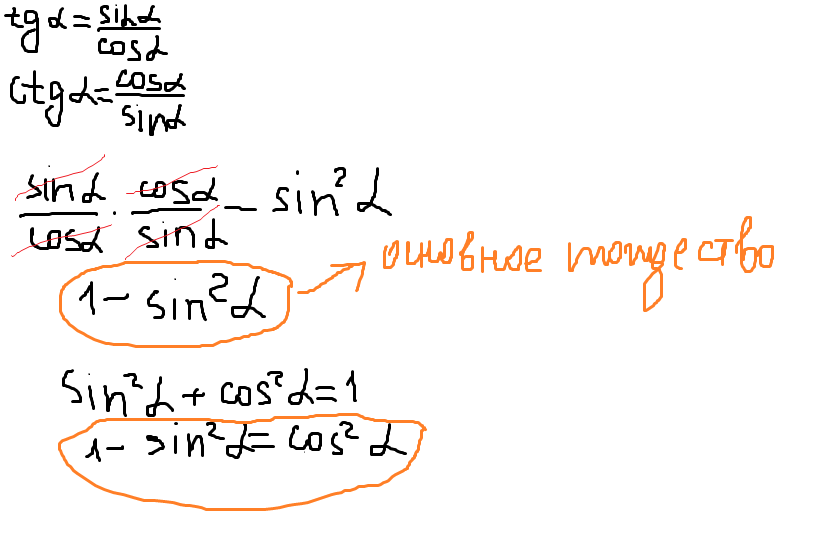 tg α = sin α / cos α
ctg α = cos α / sin α
sin α / cos α · cos α / sin α − sin² α
1 − sin² α → основное тождество
sin² α + cos² α = 1
1 − sin² α = cos² α